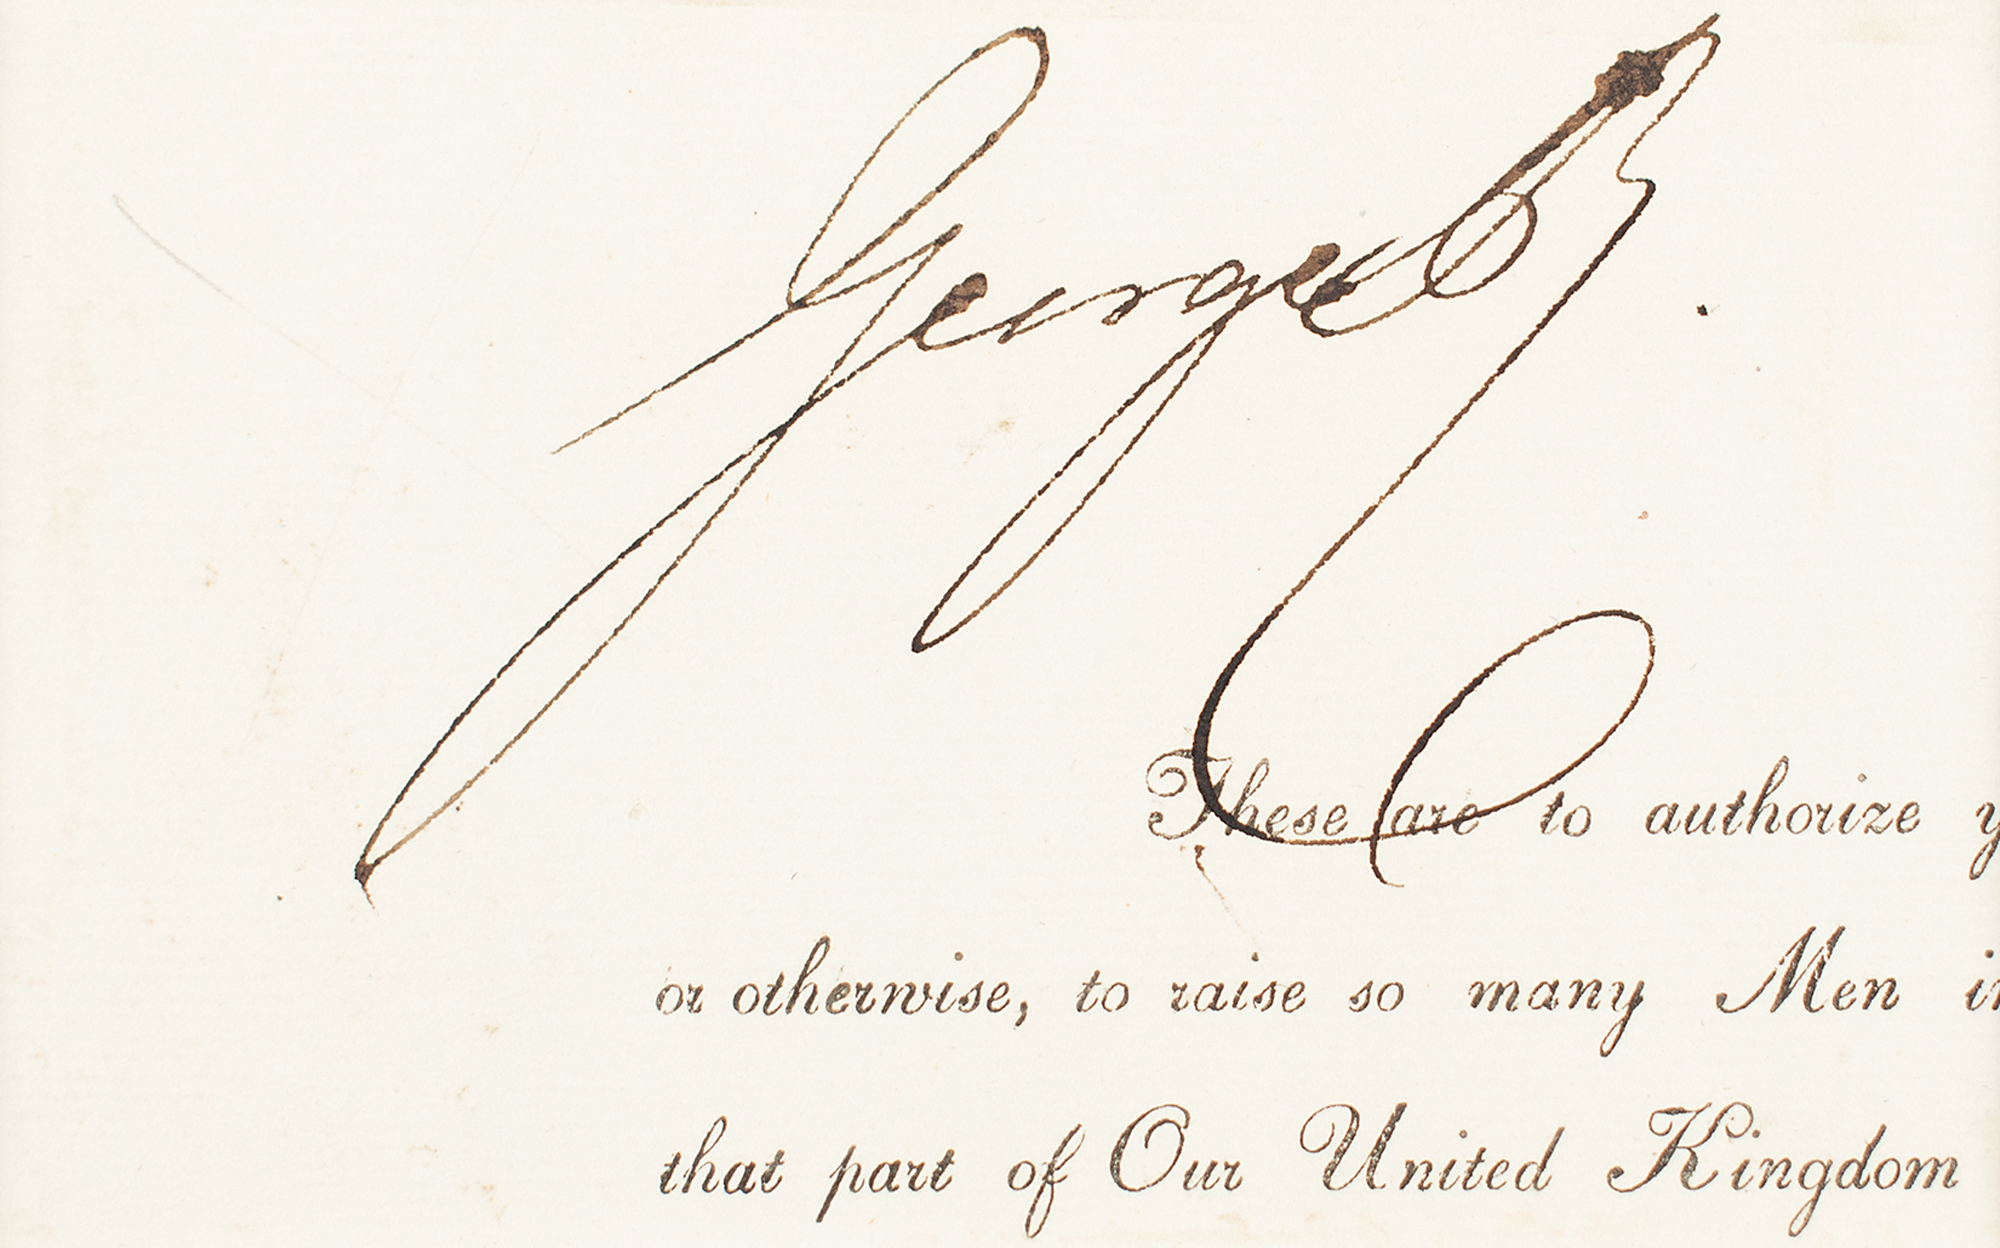 George R.
These are to authorize y
or otherwise, to raise so many Men in
that part of Our United Kingdom